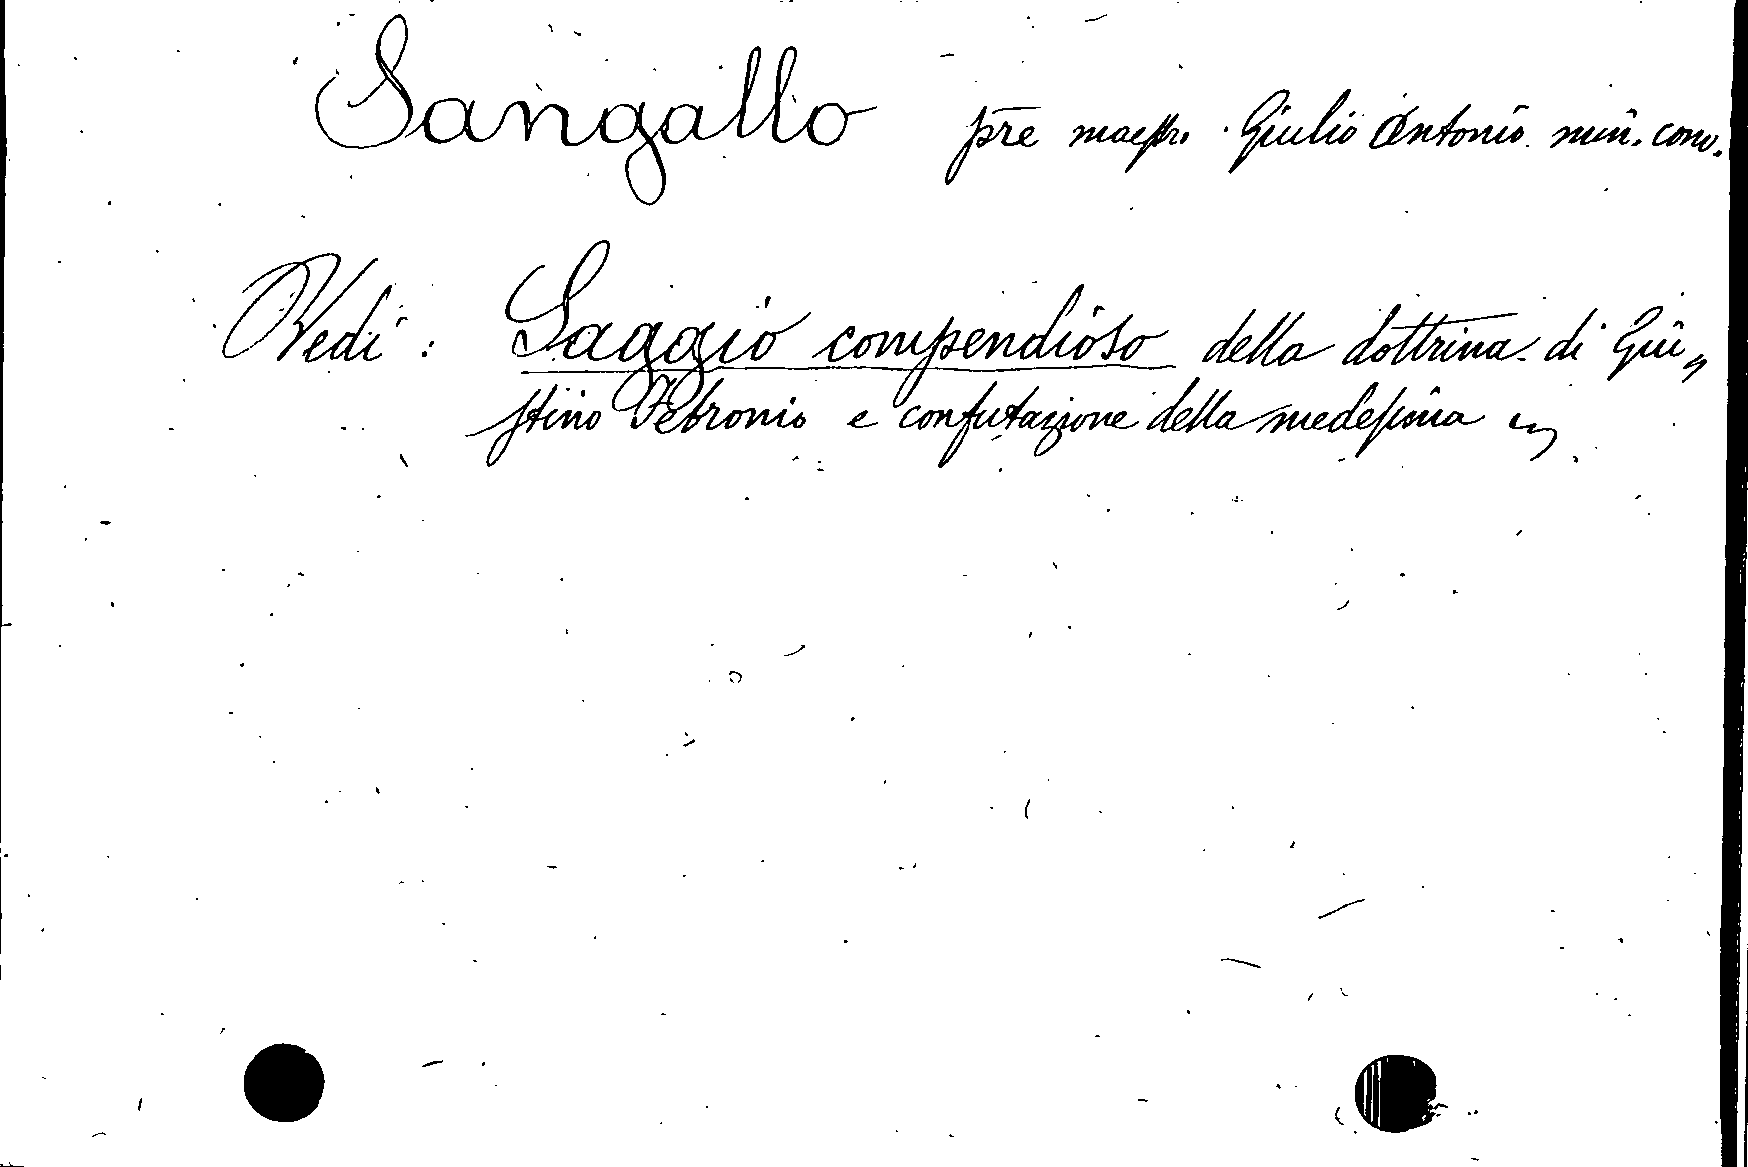 Sangallo pre maestro Giulio Antonio min. conv.
Vedi: Saggio compendioso della dottrina di Giu„
stino Febronio e confutazione della medesima